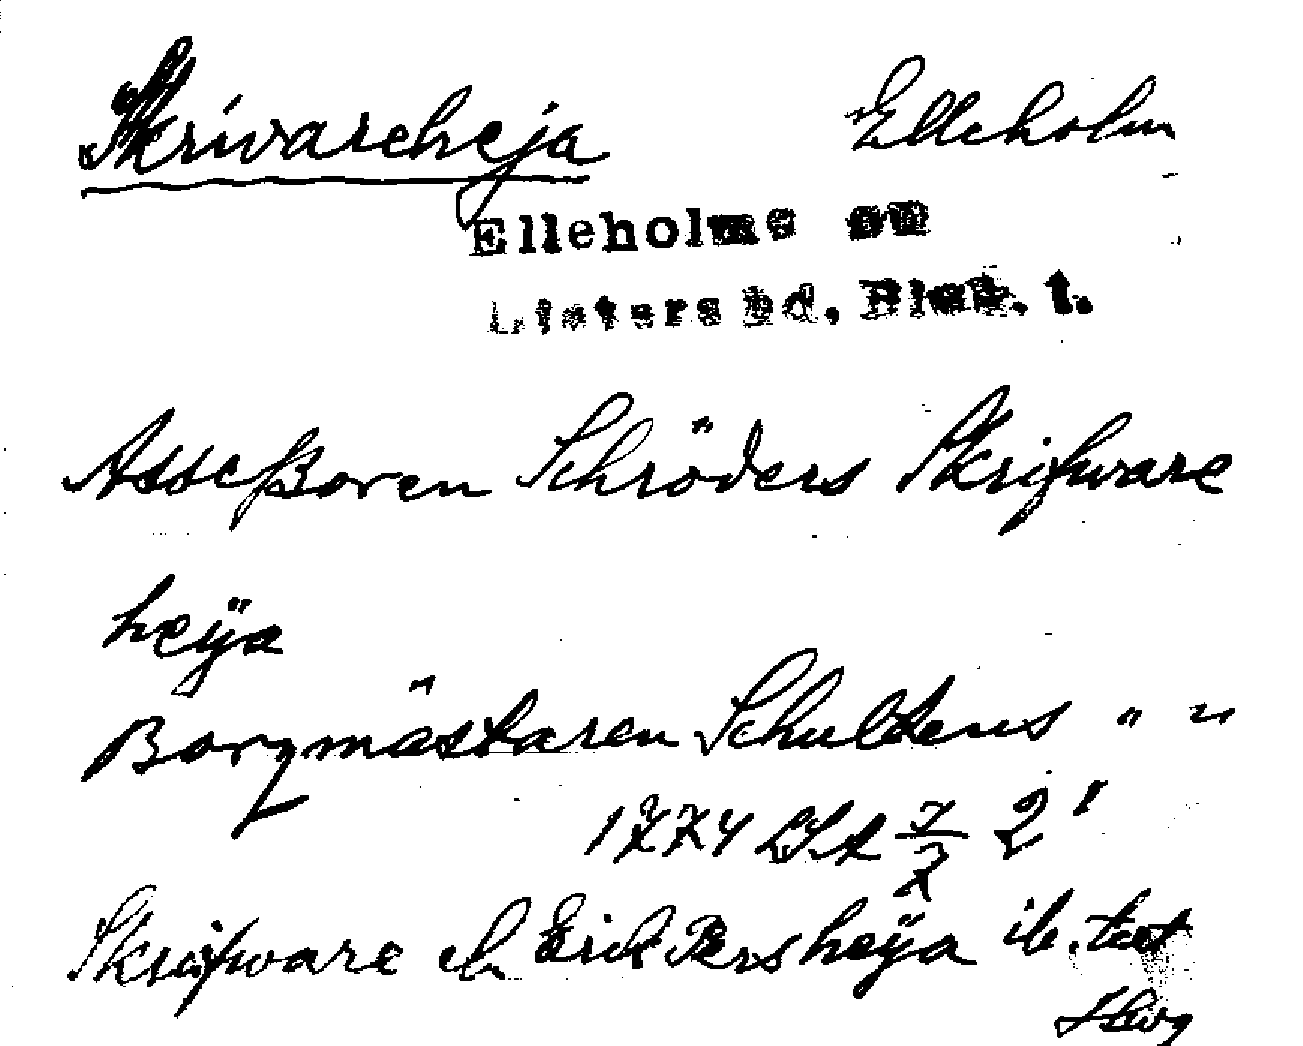 Skrivareheja Elleholm
Elleholms sn
Listers hd. Blek. l.
Assessoren Schröders Skrifware
heÿa
Borgmästaren Schultens " "
1774 LSA 2'
Skrifware ch Erick Pers heÿa ib. text